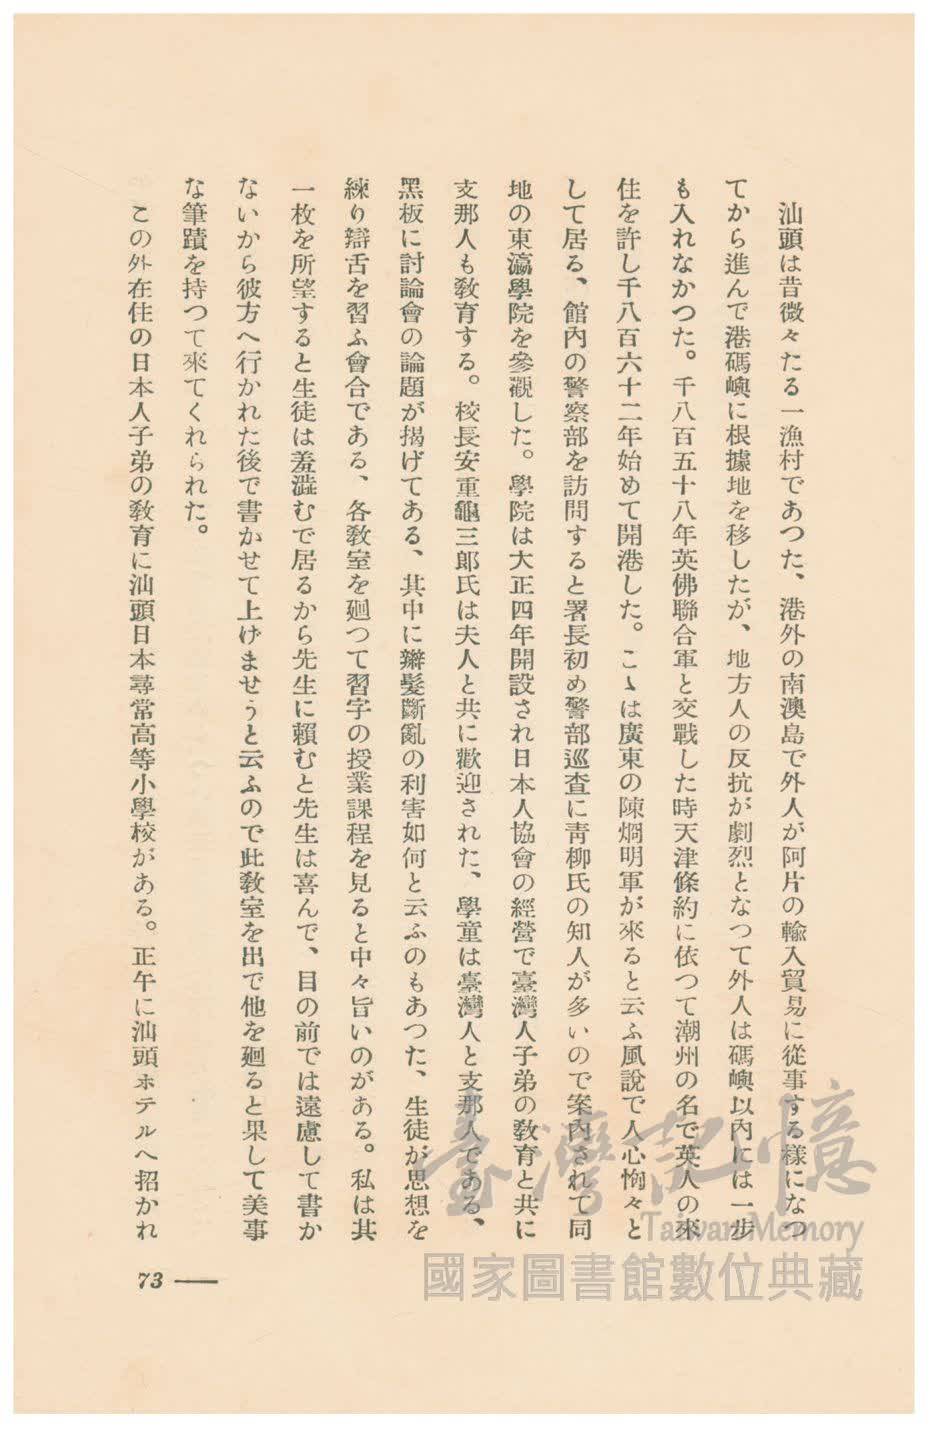 汕頭は昔微々たる一漁村であつた、港外の南澳島で外人が阿片の輸入貿易に從事する樣になつ
てから進んで港碼嶼に根據地を移したが、地方人の反抗が劇烈となつて外人は碼嶼以內には一步
も入れなかつた。千八百五十八年英佛聯合軍と交戰した時天津條約に依つて潮州の名で英人の來
住を許し千八百六十二年始めて開港した。こゝは廣東の陳烱明軍が來ると云ふ風說で人心恟々と
して居る、館內の警察部を訪問すると署長初め警部巡査に靑柳氏の知人が多いので案內されて同
地の東瀛學院を參觀した。學院は大正四年開設され日本人協會の經營で臺灣人子弟の敎育と共に
支那人も敎育する。校長安重龜三郞氏は夫人と共に歡迎された、學童は臺灣人と支那人である、
黑板に討論會の論題が揭げてある、其中に辮髮斷亂の利害如何と云ふのもあつた、生徒が思想を
練り辯舌を習ふ會合である、各敎室を廻つて習字の授業課程を見ると中々旨いのがある。私は其
一枚を所望すると生徒は羞澁むで居るから先生に賴むと先生は喜んで、目の前では遠慮して書か
ないから彼方へ行かれた後で書かせて上げませうと云ふので此敎室を出で他を廻ると果して美事
な筆蹟を持つて來てくれられた。
この外在住の日本人子弟の敎育に汕頭日本尋常高等小學校がある。正午に汕頭ホテルへ招かれ
73
臺灣記憶
Taiwan Memory
國家圖書館數位典藏